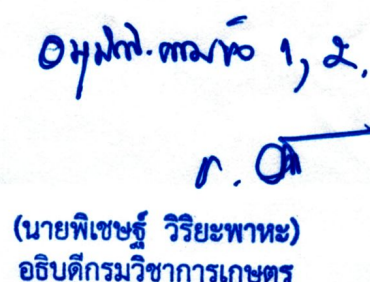 อนุมัติ ตามข้อ 1, 2.
(นายพิเชษฐ์ วิริยะพาหะ)
อธิบดีกรมวิชาการเกษตร